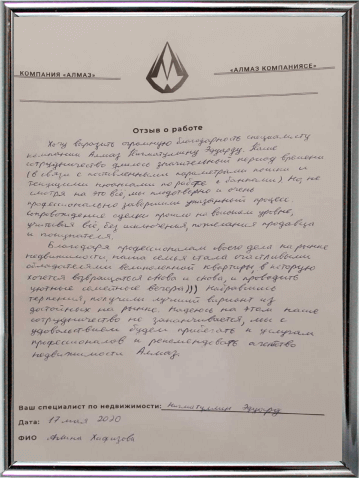 КОМПАНИЯ «АЛМАЗ»
«АЛМАЗ КОМПАНИЯСЕ»
Отзыв о работе
Хочу выразить огромную благодарность специалисту
компании Алмаз Нигматуллину Эдуарду. Наше
сотрудничество длилось значительный период времени
(в связи с поставленными параметрами поиска и
текущими нюансами по работе с банками) Но, не
смотря на это всё, мы плодотворно и очень
профессионально завершили указанный процесс
сопровождение сделки прошло на высоком уровне,
учитывая всё, без исключения, пожелания продавца
и покупателя.
Благодаря профессионалам своего дела на рынке
недвижимости, наша семья стала счастливыми
обладателями великолепной квартиры, в которую
хочется возвращаться снова и снова, и проводить
уютные семейные вечера))) Набравшись
терпения, получили лучший вариант из
достойных на рынке. Надеюсь на этом наше
сотрудничество не заканчивается, мы с
удовольствием будем прибегать к услугам
профессионалов и рекомендовать агентство
недвижимости Алмаз.
Ваш специалист по недвижимости: Нигматуллин Эдуард
Дата: 17 мая 2020
ФИО Хафизова